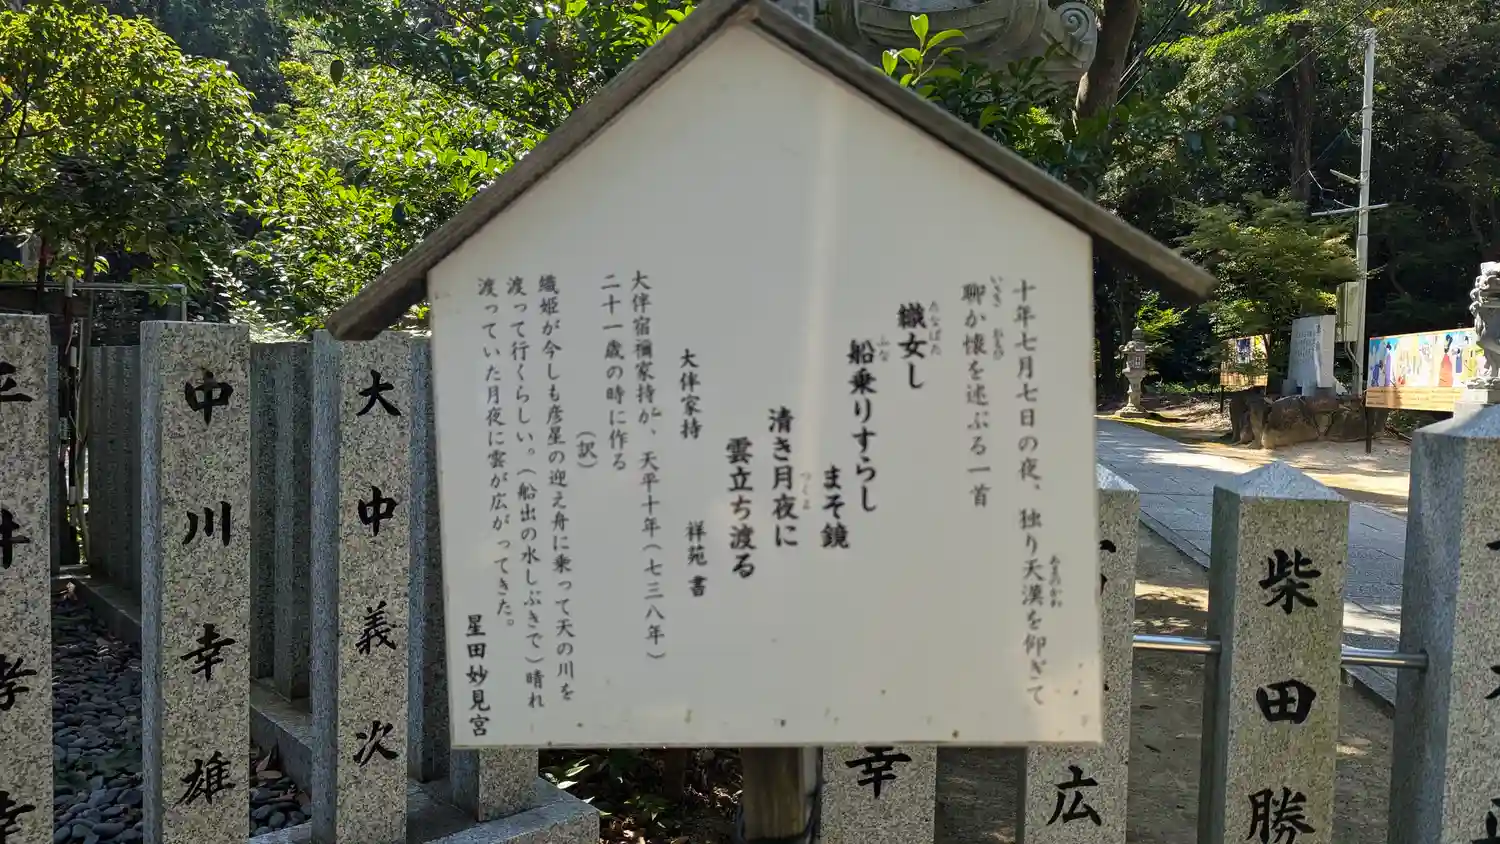 十年七月七日の夜、独り天漢を仰ぎて
あまのかわ
聊か懐を述ぶる一首
いささ
おもひ
織女し
たなばた
船乗りすらし
ふな
まそ鏡
清き月夜に
つくよ
雲立ち渡る
大伴家持
祥苑 書
大伴宿禰家持が、天平十年(七三八年)
二十一歳の時に作る
(訳)
織姫が今しも彦星の迎え舟に乗って天の川を
渡って行くらしい。(船出の水しぶきで)晴れ
渡っていた月夜に雲が広がってきた。
星田妙見宮
柴田勝
広
幸
大中義次
中川幸雄
平井孝幸